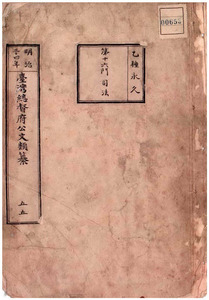 00656
乙種永久
第十六門 司法
明治
卅四年
臺灣總督府公文類纂
五五